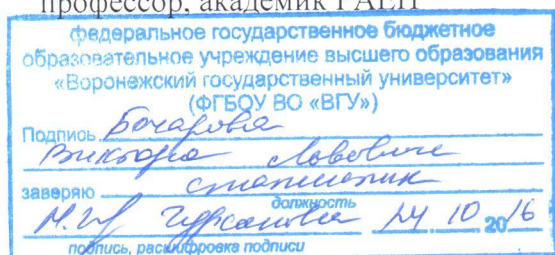 профессор, академик РАЕН
федеральное государственное бюджетное
образовательное учреждение высшего образования
«Воронежский государственный университет»
(ФГБОУ ВО «ВГУ»)
Подпись Бочарова
Виктора Львовича
заверяю
должность
24 10 2016
подпись, расшифровка подписи